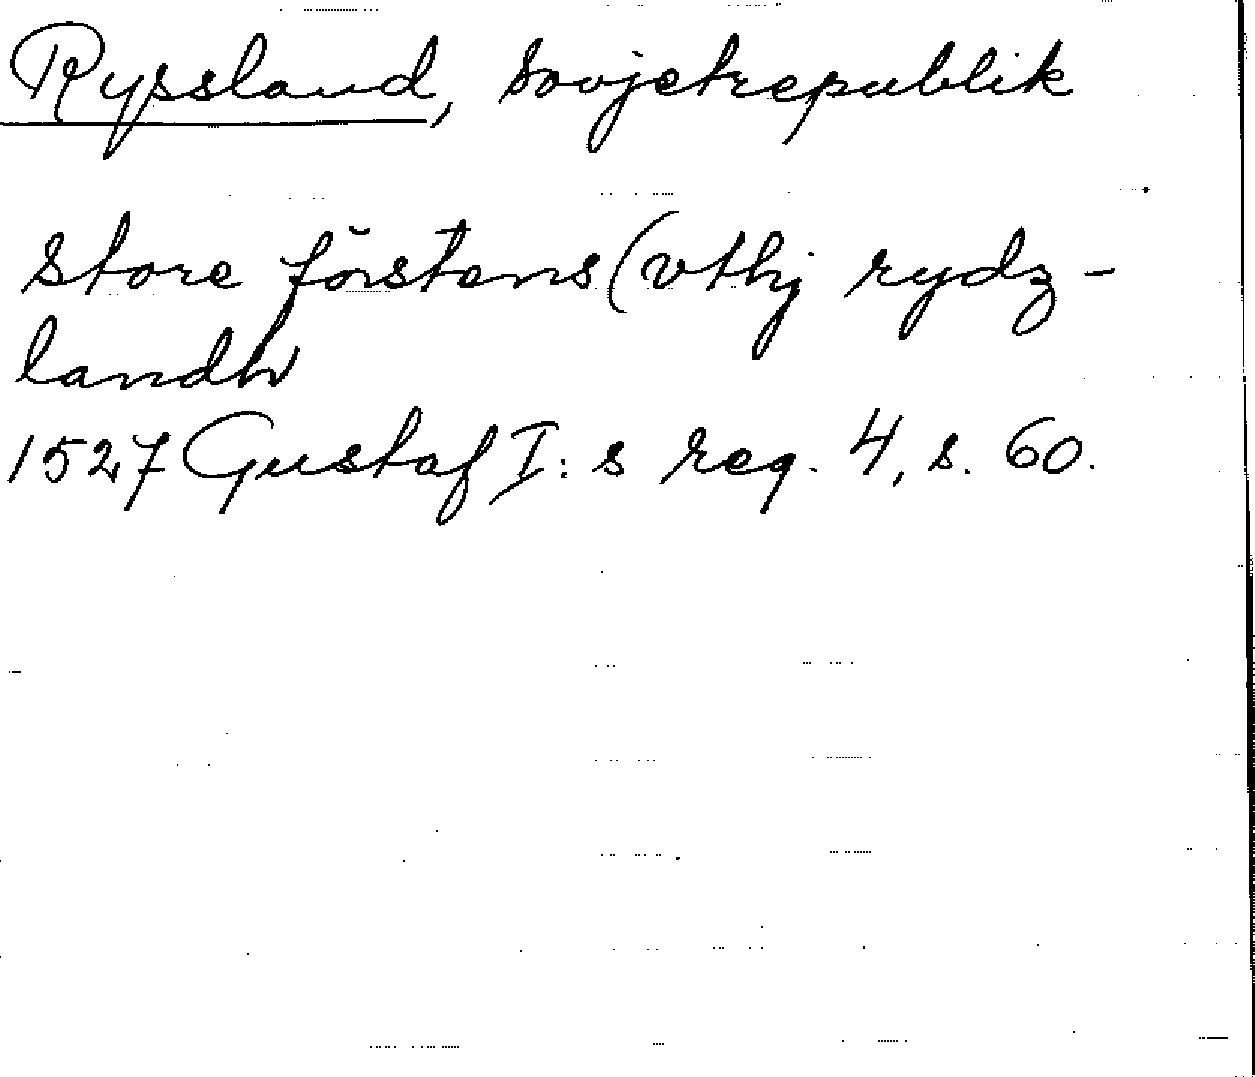 Ryssland, Sovjetrepublik
Store förstens (vthj rydz-
landh
1527 Gustaf I:s reg. 4, s. 60.